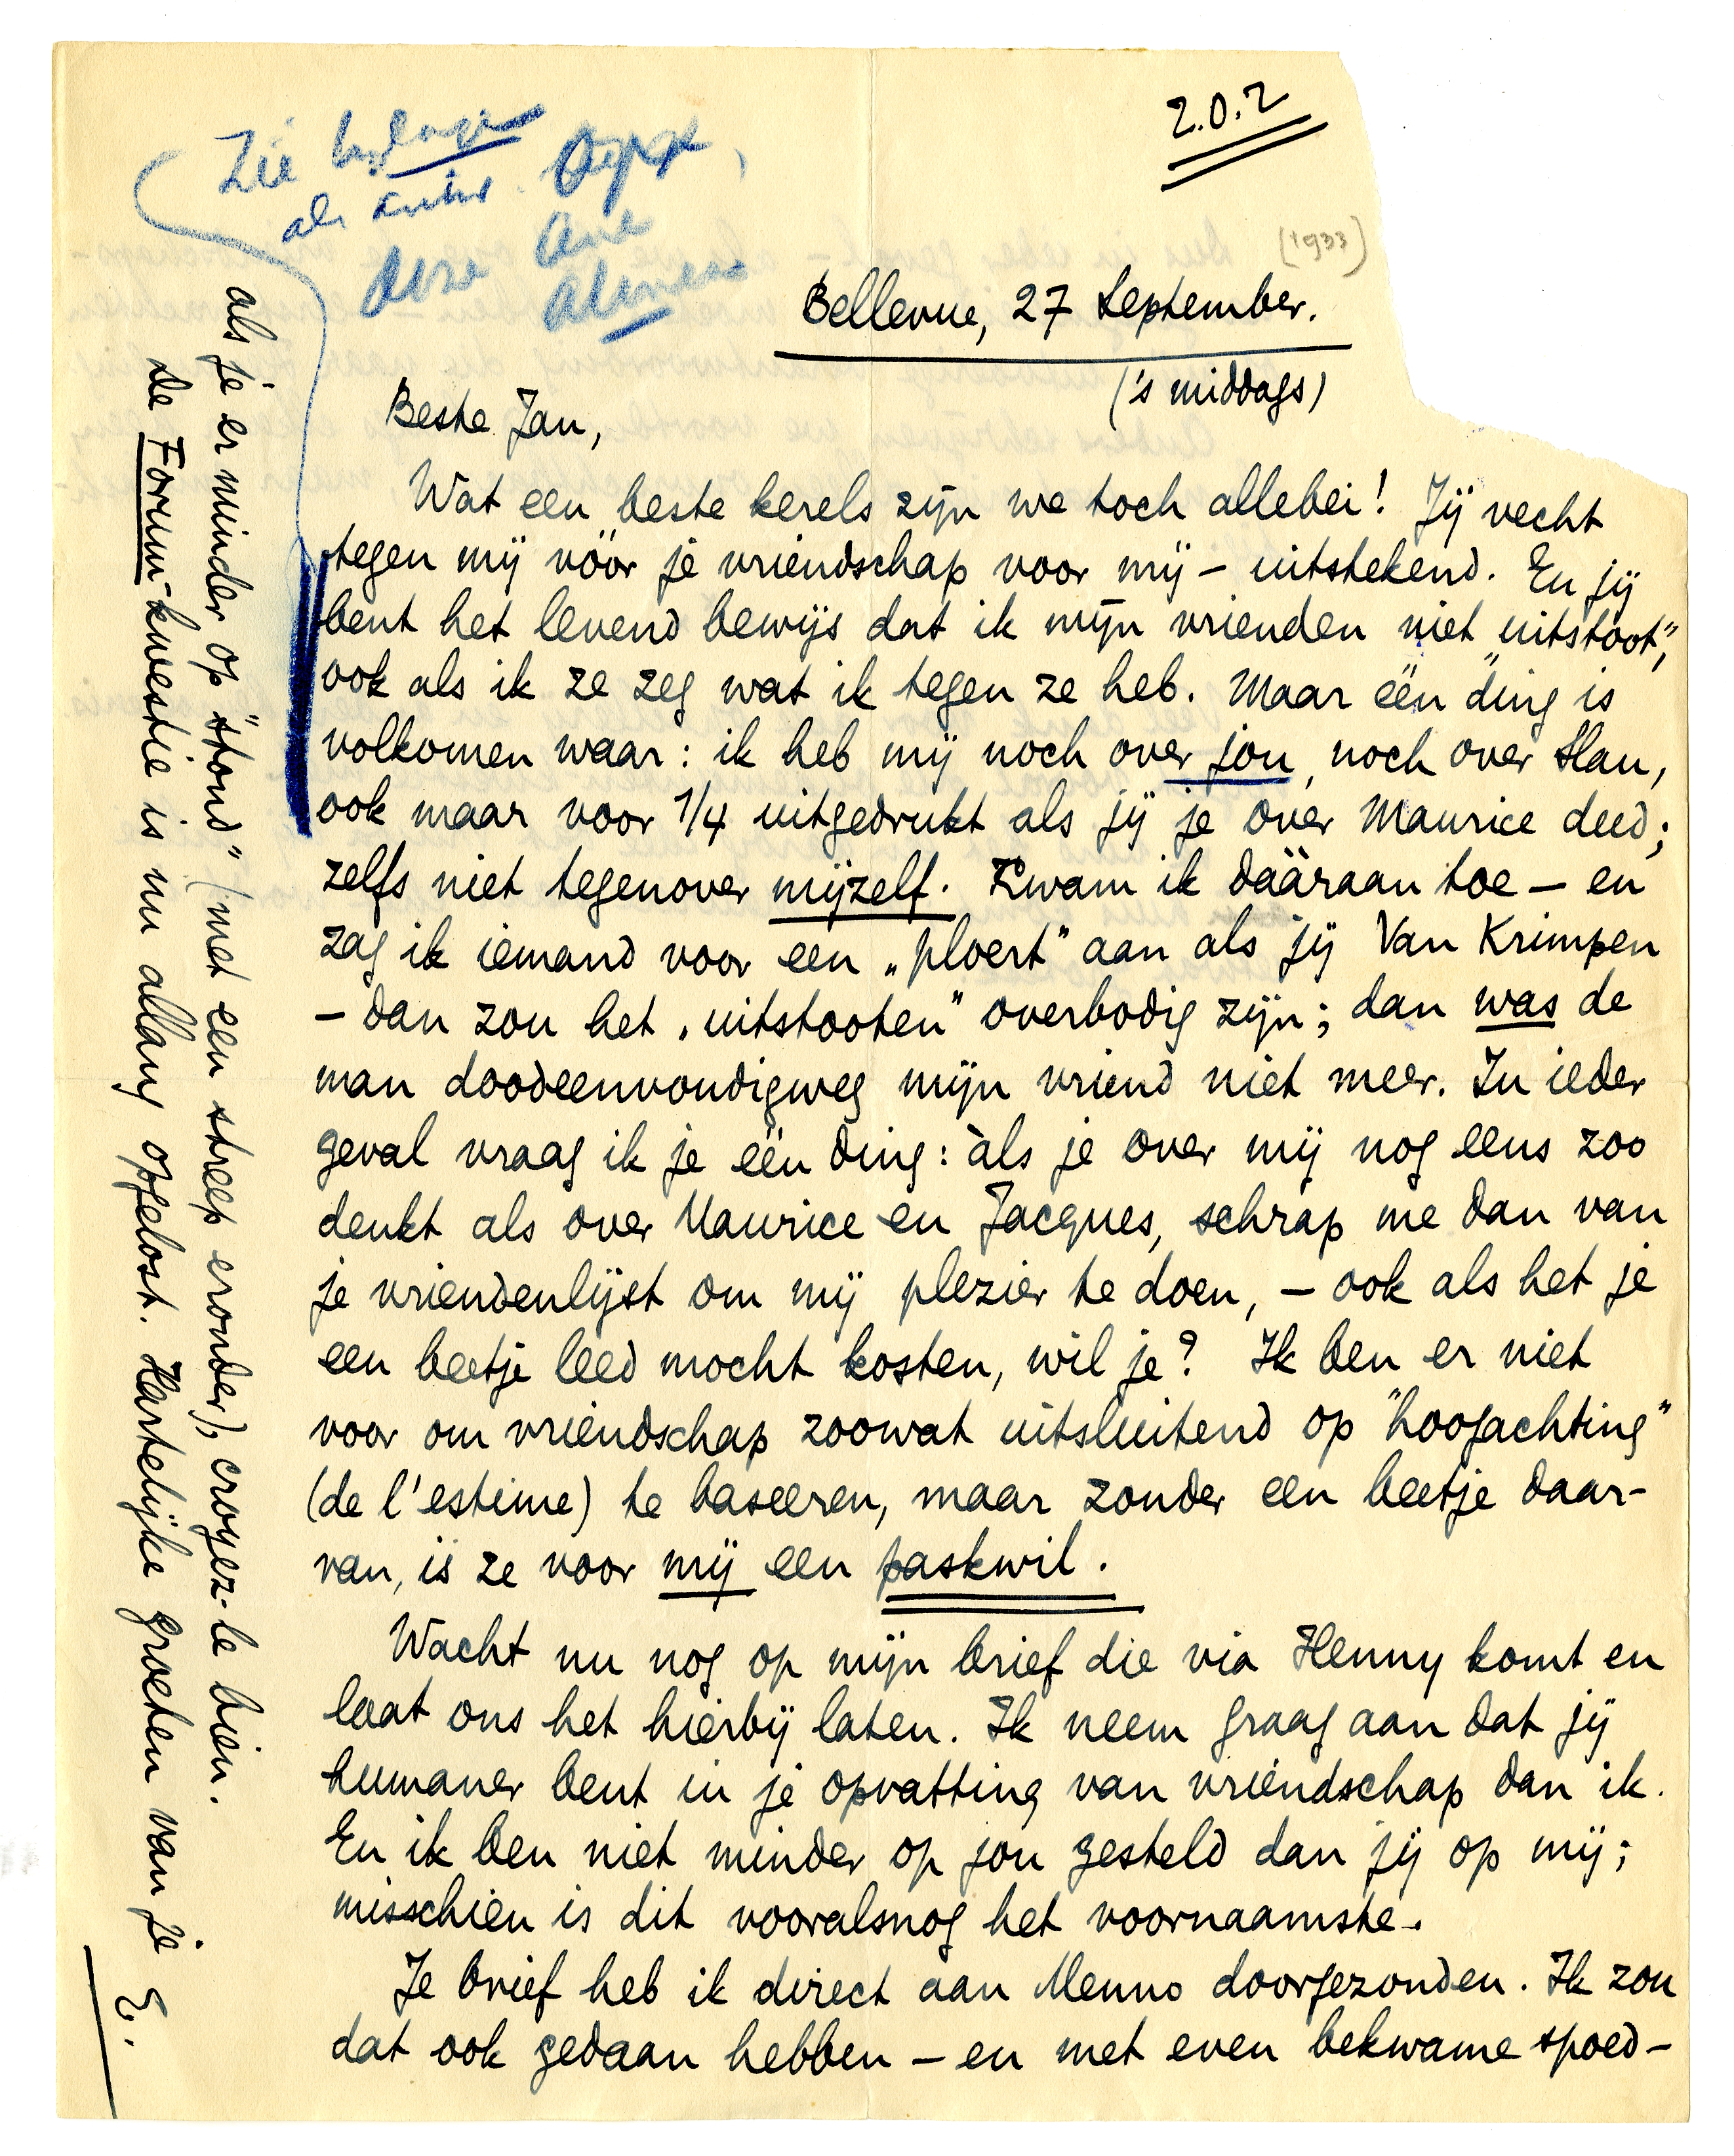 Z.O.Z
Zie
(1933)
Bellevue, 27 September.
('s middags)
Beste Jan,
Wat een beste kerels zijn we toch allebei! Jij vecht
tegen mij vóór je vriendschap voor mij – uitstekend. En jij
bent het levend bewijs dat ik mijn vrienden niet „uitstoot",
ook als ik ze zeg wat ik tegen ze heb. Maar één ding is
volkomen waar: ik heb mij noch over jou, noch over Han,
ook maar voor 1/4 uitgedrukt als jij je over Maurice deed;
zelfs niet tegenover mijzelf. Kwam ik dááraan toe – en
zag ik iemand voor een „ploert" aan als jij Van Krimpen
– dan zou het „uitstooten" overbodig zijn; dan was de
man doodeenvoudigweg mijn vriend niet meer. In ieder
geval vraag ik je één ding: àls je over mij nog eens zoo
denkt als over Maurice en Jacques, schrap me dan van
je vriendenlijst om mij plezier te doen, – ook als het je
een beetje leed mocht kosten, wil je? Ik ben er niet
voor om vriendschap zoowat uitsluitend op "hoogachting"
(de l'estime) te baseeren, maar zonder een beetje daar-
van, is ze voor mij een paskwil.
Wacht nu nog op mijn brief die via Henny komt en
laat ons het hierbij laten. Ik neem graag aan dat jij
humaner bent in je opvatting van vriendschap dan ik.
En ik ben niet minder op jou gesteld dan jij op mij;
misschien is dit vooralsnog het voornaamste.
Je brief heb ik direct aan Menno doorgezonden. Ik zou
dat ook gedaan hebben – en met even bekwame spoed –
als je er minder op "stond" (met een streep eronder), croyez-le bien.
De Forum-kwestie is nu allang opgelost. Hartelijke groeten van je
E.